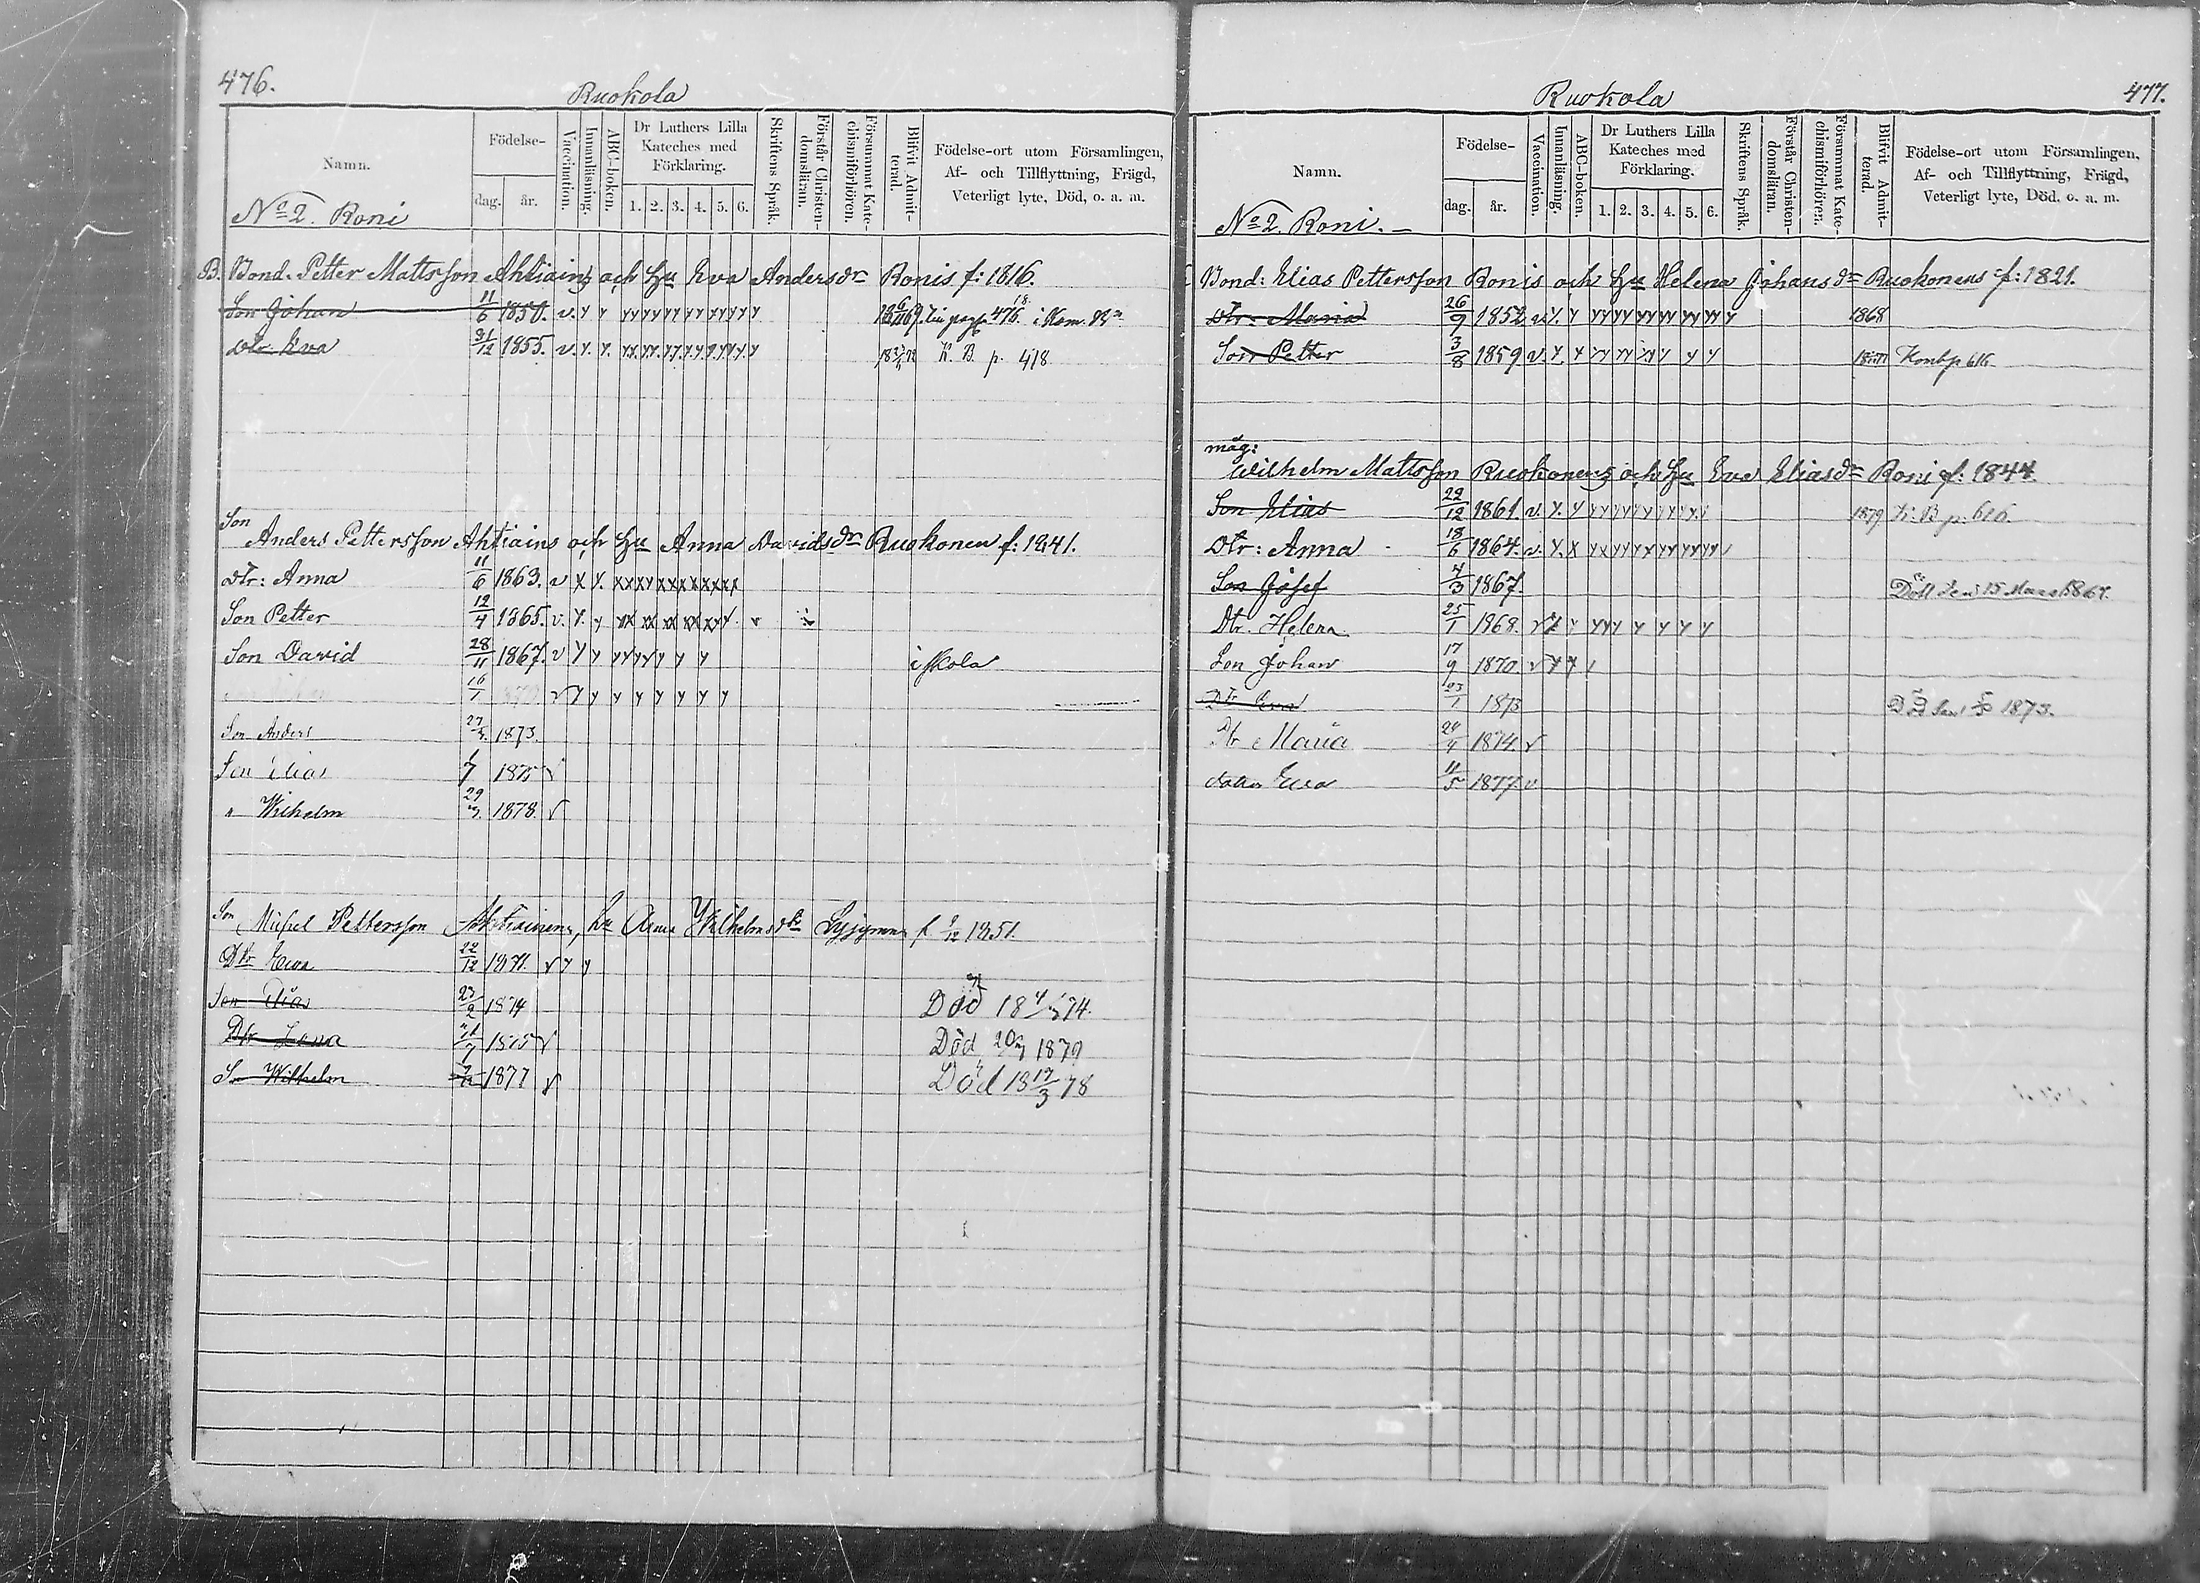 476.
Ruokola
Namn.
Födelse-
dag.
år.
Vaccination.
Innanläsning.
ABC-boken.
Dr Luthers Lilla
Kateches med
Förklaring.
1. 2. 3. 4. 5. 6.
Skriftens Språk.
Förstår Christen-
domsläran.
Försummat Kate-
chismiförhören.
Blifvit Admit-
terad.
Födelse-ort utom Församlingen,
Af- och Tillflyttning, Frägd,
Veterligt lyte, Död, o. a. m.
No 2. Roni
B. Bond. Petter Mattsson Ahtiains och hu Eva Andersdr Ronis f: 1816.
Son Johan 11/6 1850. v. y y
Dtr Eva 31/12 1855. v. y. y. K. B. p. 418
Son
Anders Pettersson Ahtiains och hu Anna Davidsdr Ruokonen f: 1841.
Dtr: Anna 11/6 1863. v x y.
Son Petter 12/4 1865. v. y. y
Son David 28/11 1867. v y y i skola
16/1 v y y y y y y y y
Son Anders 1873.
Son Elias 1875 v
" Wilhelm 1878. v
Son Michel Pettersson Ahtiainen, hu Anna Wilhelmsdr f 1851.
Dtr Ewa 22/12 1871. v y y
Son Elias 23/2 1874 Död 18 4/3 74.
Dtr Lena 1875 v Död 1879
S Wilhelm 1877 v Död 18 17/3 78
477.
Ruokola
Namn.
Födelse-
dag.
år.
Vaccination.
Innanläsning.
ABC-boken.
Dr Luthers Lilla
Kateches med
Förklaring.
1. 2. 3. 4. 5. 6.
Skriftens Språk.
Förstår Christen-
domsläran.
Försummat Kate-
chismiförhören.
Blifvit Admit-
terad.
Födelse-ort utom Församlingen,
Af- och Tillflyttning, Frägd,
Veterligt lyte, Död, o. a. m.
No 2. Roni.
Bond: Elias Pettersson Ronis och hu Helena Johansdr Ruokonens f: 1821.
Dtr: Maria 26/9 1852 v. y. y 1868
Son Petter 3/8 1859 v. y. y
måg:
Wilhelm Mattsson Ruokonens och hu Eva Eliasdr Roni f: 1844.
Son Elias 22/12 1861. v. y. y 1879 K. B p. 616.
Dtr: Anna 18/6 1864. v. y. x
Son Josef 4/3 1867. Död den 15 Mars 1867.
Dtr. Helena 25/1 1868. v
Son Johan 17/9 1870. v y y
Dtr Eva 23/1 1873 Död den 1873.
Dtr Maria 1874 v
dotter Ewa 11/5 1877. v